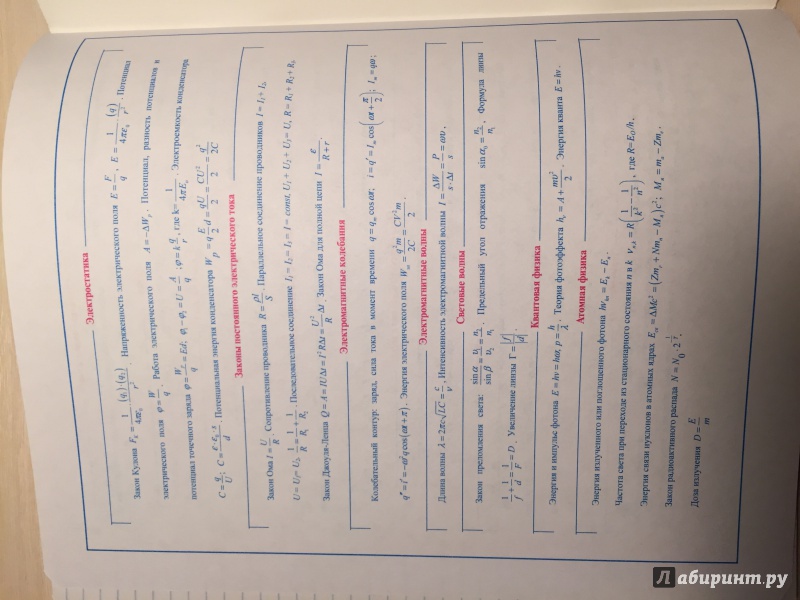 Электростатика
Закон Кулона F₀ = 1/4πε₀ · (q₁)(q₂)/r². Напряженность электрического поля E = F/q, E = 1/4πε₀ · (q)/r². Потенциал
электрического поля φ = W/q. Работа электрического поля A = −ΔWₚ. Потенциал, разность потенциалов в
потенциал точечного заряда φ = W/q = Ed; φ₁ − φ₂ = U = A/q; φ = k q/r, где k = 1/4πE₀. Электроемкость конденсатора
C = q/U; C = ε·ε₀·s/d. Потенциальная энергия конденсатора Wₚ = q E/2 d = qU/2 = CU²/2 = q²/2C
Законы постоянного электрического тока
Закон Ома I = U/R. Сопротивление проводника R = ρl/S. Параллельное соединение проводников I = I₁ + I₂.
U = U₁ = U₂, 1/R = 1/R₁ + 1/R₂. Последовательное соединение I₁ = I₂ = I₃ = I = const, U₁ + U₂ + U₃ = U, R = R₁ + R₂ + R₃
Закон Джоуля-Ленца Q = A = IUΔt = I²RΔt = U²/R Δt. Закон Ома для полной цепи I = ε/R + r.
Электромагнитные колебания
Колебательный контур: заряд, сила тока в момент времени q = qₘ cos ωt; i = q' = Iₘ cos(ωt + π/2); Iₘ = qω:
q'' = i' = −ω²q cos(ωt + π). Энергия электрического поля Wₘ = q²m/2C = CU²m/2
Электромагнитные волны
Длина волны λ = 2πc√LC = c/ν, Интенсивность электромагнитной волны I = ΔW/s·Δt = P/s = ωυ.
Световые волны
Закон преломления света: sin α/sin β = υ₁/υ₂ = n₂/n₁. Предельный угол отражения sin α₀ = n₂/n₁. Формула линзы
1/f + 1/d = 1/F = D. Увеличение линзы Γ = |f|/|d|.
Квантовая физика
Энергия и импульс фотона E = hν = hω, p = h/λ. Теория фотоэффекта hᵥ = A + mυ²/2. Энергия кванта E = hν.
Атомная физика
Энергия излученного или поглощенного фотона hνₖₙ = Eₖ − Eₙ.
Частота света при переходе из стационарного состояния n в k νₙₖ = R(1/k² − 1/n²), где R=E₀/h.
Энергия связи нуклонов в атомных ядрах E = ΔMc² = (Zmₚ + Nmₙ − Mₐ)c²;
Закон радиоактивного распада
Доза излучения D = E/m